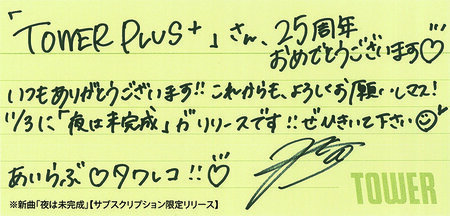 「TOWER PLUS+」さん、25周年
おめでとうございます♡
いつもありがとうございます!! これからも、よろしくお願いしマス!
11/3に「夜は未完成」がリリースです!! ぜひきいて下さい
あいらぶ♡タワレコ!!♡
TOWER
※新曲「夜は未完成」【サブスクリプション限定リリース】